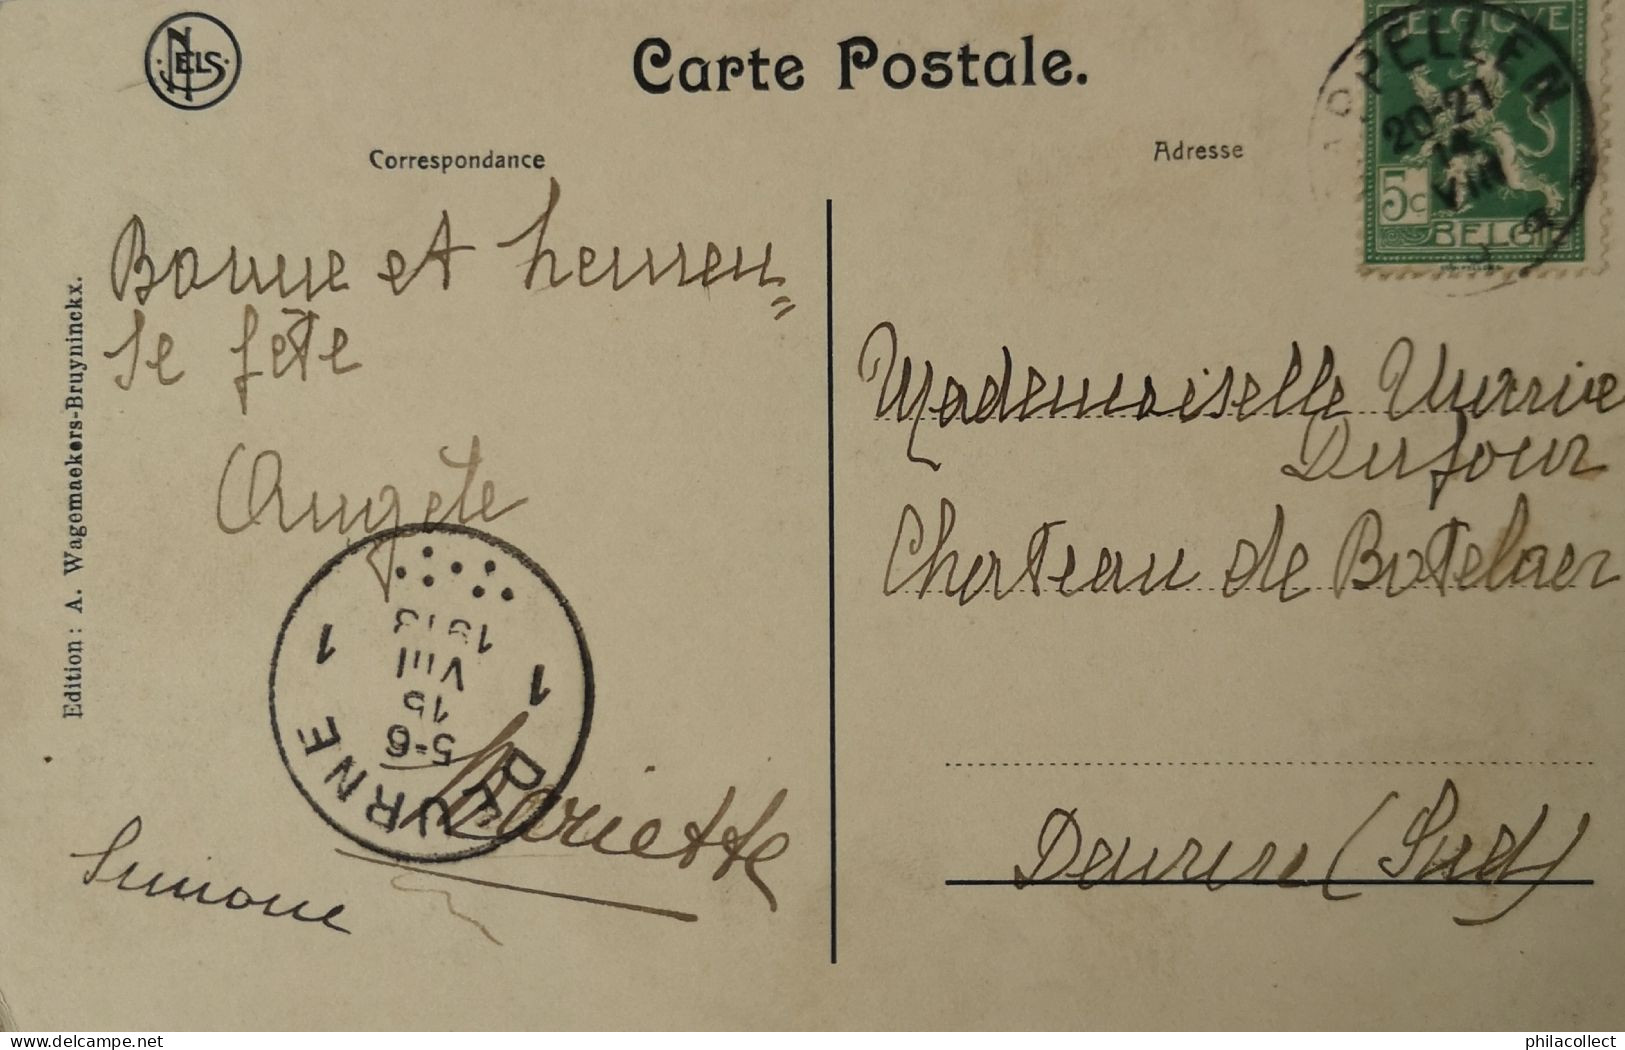 NELS
Carte Postale.
Correspondance
Adresse
BELGIQUE
CAPPELLEN
20-21
14
VIII
5c
BELGIE
Bonne et heureu=
se fête
Angèle
Mariette
Simone
DEURNE
1 1 1
5-6
15
VIII
1913
Mademoiselle
Dufour
Chateau de Botelaer
Deurne (Sud)
Edition: A. Wagemaekers-Bruyninckx.
delcampe.net
philacollect